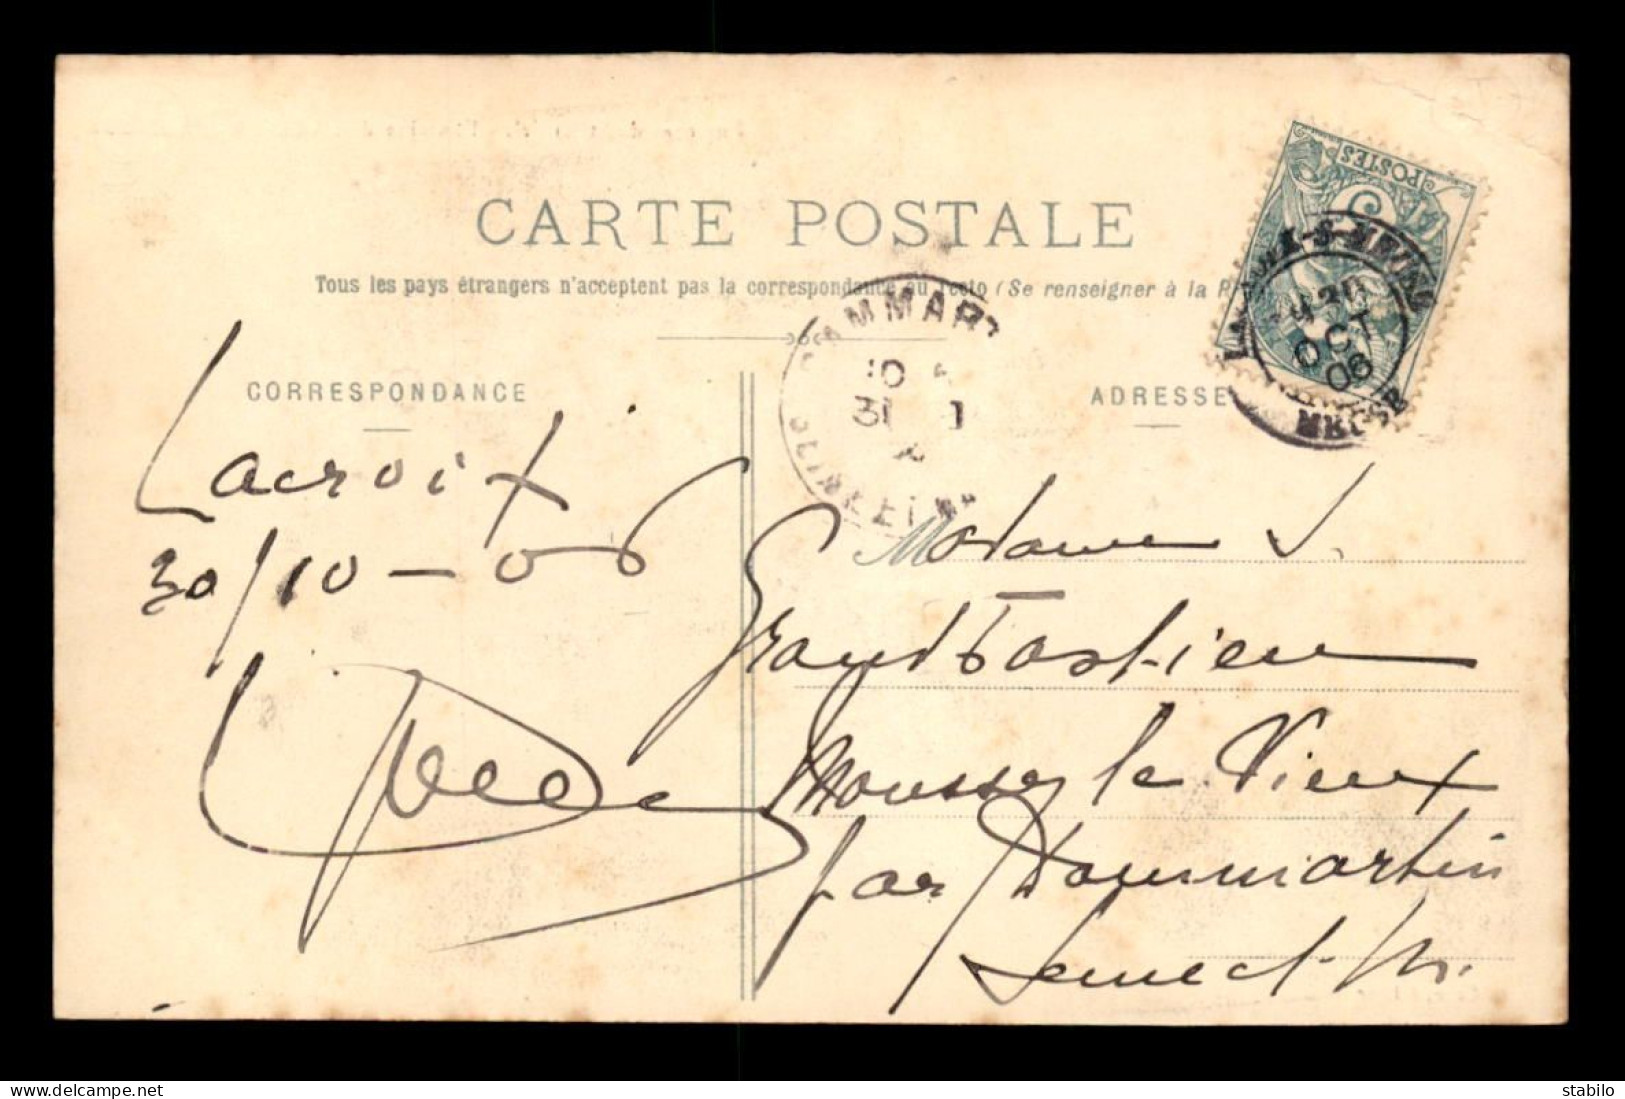 CARTE POSTALE
Tous les pays étrangers n'acceptent pas la correspondance au recto (Se renseigner à la
CORRESPONDANCE
ADRESSE
POSTES
5
OCT
06
MEUSE
MMAR
10
31
SEINE ET
Lacroix
30/10-06
Madame J.
Grand
Moussy le Vieux
par Dammartin
Seine et M.
delcampe.net
stabilo